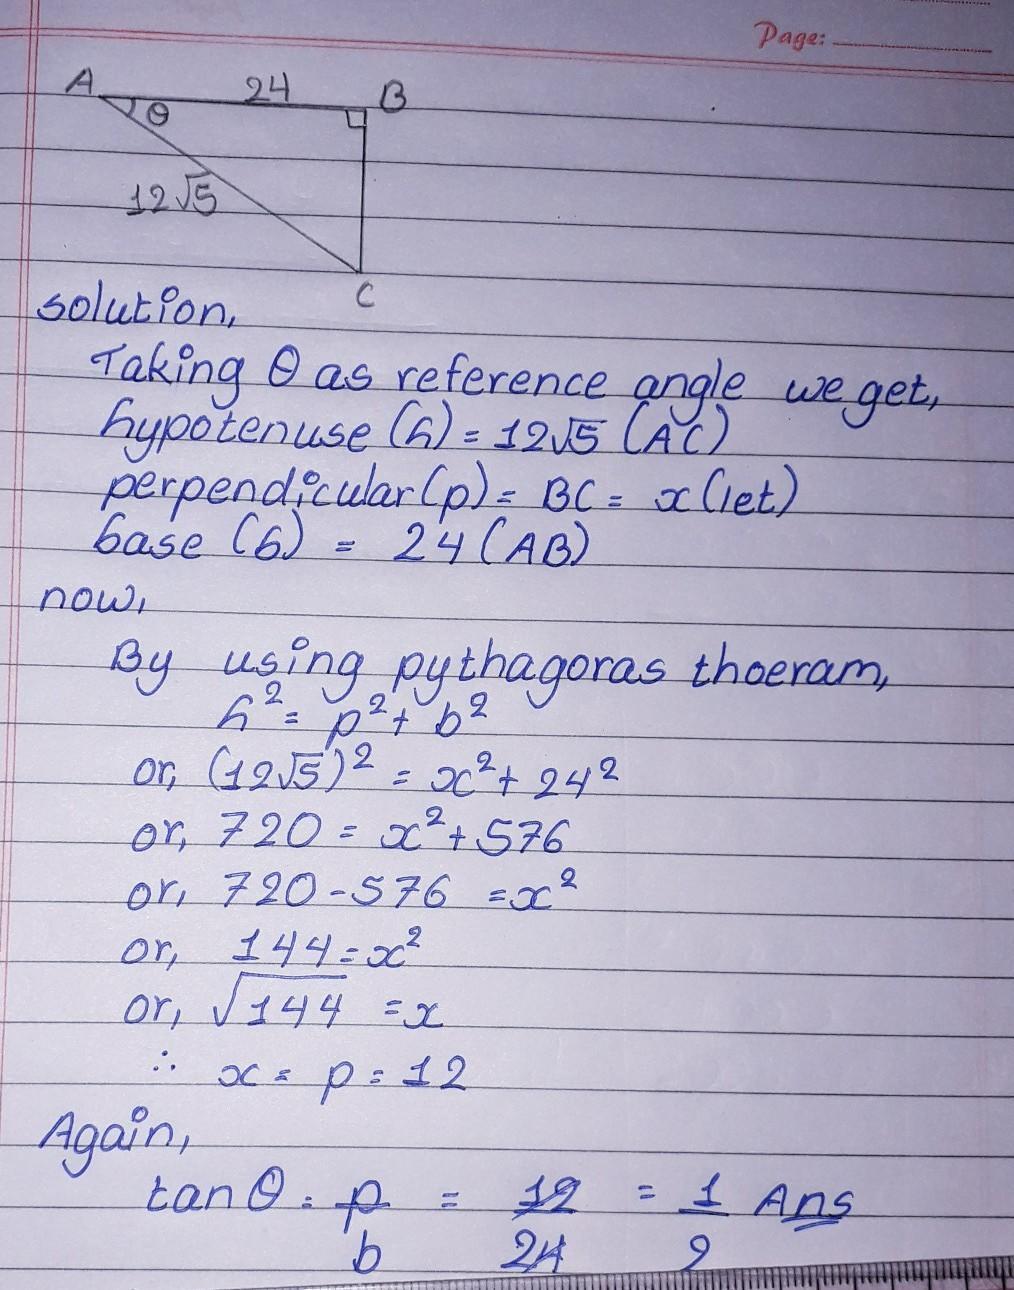 Page:
A 24 B
θ
12√5
C
solution,
Taking θ as reference angle we get,
hypotenuse (h) = 12√5 (AC)
perpendicular (p) = BC = x (let)
base (b) = 24 (AB)
now,
By using pythagoras thoeram,
h² = p² + b²
or, (12√5)² = x² + 24²
or, 720 = x² + 576
or, 720 - 576 = x²
or, 144 = x²
or, √144 = x
∴ x = p = 12
Again,
tan θ = p/b = 12/24 = 1/2 Ans